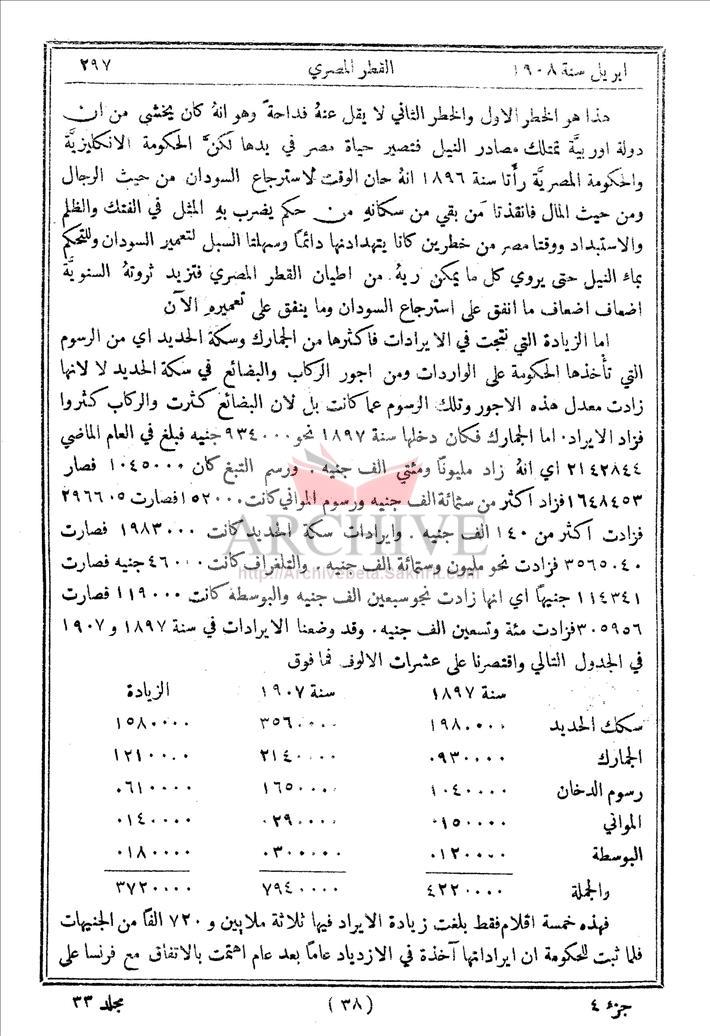 ابريل سنة ١٩٠٨ القطر المصري ٢٩٧
هذا هو الخطر الاول والخطر الثاني لا يقل عنهُ فداحةً وهو انهُ كان يخشى من ان
دولة اوربيَّة تمتلك مصادر النيل فتصير حياة مصر في يدها لكنَّ الحكومة الانكليزيَّة
والحكومة المصريَّة رأَتا سنة ١٨٩٦ انهُ حان الوقت لاسترجاع السودان من حيث الرجال
ومن حيث المال فانقذتا مَن بقي من سكانهِ من حكم يضرب بهِ المثل في الفتك والظلم
والاستبداد ووقتا مصر من خطرين كانا يتهدادنها دائمًا وسهلتا السبل لتعمير السودان وللتحكم
بماء النيل حتى يروي كل ما يمكن ريهُ من اطيان القطر المصري فتزيد ثروتهُ السنويَّة
اضعاف اضعاف ما انفق على استرجاع السودان وما ينفق على تعميرهِ الآن
اما الزيادة التي نتجت في الايرادات فاكثرها من الجمارك وسكة الحديد اي من الرسوم
التي تأخذها الحكومة على الواردات ومن اجور الركاب والبضائع في سكة الحديد لا لانها
زادت معدل هذه الاجور وتلك الرسوم عما كانت بل لان البضائع كثرت والركاب كثروا
فزاد الايراد. اما الجمارك فكان دخلها سنة ١٨٩٧ نحو ٩٣٤٠٠٠ جنيه فبلغ في العام الماضي
٢١٤٢٨٤٤ اي انهُ زاد مليونًا ومئتي الف جنيه. ورسم التبغ كان ١٠٤٥٠٠٠ فصار
١٦٤٨٤٥٣ فزاد اكثر من ستمائة الف جنيه ورسوم المواني كانت ١٥٢٠٠٠ فصارت ٢٩٦٦٠٥
فزادت اكثر من ١٤٠ الف جنيه. وايرادات سكة الحديد كانت ١٩٨٣٠٠٠ فصارت
٣٥٦٥٠٤٠ فزادت نحو مليون وستمائة الف جنيه. والتلغراف كانت ٤٦٠٠٠ جنيه فصارت
١١٤٣٤١ جنيهًا اي انها زادت نحو سبعين الف جنيه والبوسطة كانت ١١٩٠٠٠ فصارت
٣٠٥٩٥٦ فزادت مئة وتسعين الف جنيه. وقد وضعنا الايرادات في سنة ١٨٩٧ و١٩٠٧
في الجدول التالي واقتصرنا على عشرات الالوف فما فوق
سنة ١٨٩٧ سنة ١٩٠٧ الزيادة
سكك الحديد ١٩٨٠٠٠٠ ٣٥٦٠٠٠٠ ١٥٨٠٠٠٠
الجمارك ٠٩٣٠٠٠٠ ٢١٤٠٠٠٠ ١٢١٠٠٠٠
رسوم الدخان ١٠٤٠٠٠٠ ١٦٥٠٠٠٠ ٠٦١٠٠٠٠
المواني ٠١٥٠٠٠٠ ٠٢٩٠٠٠٠ ٠١٤٠٠٠٠
البوسطة ٠١٢٠٠٠٠ ٠٣٠٠٠٠٠ ٠١٨٠٠٠٠
والجملة ٤٢٢٠٠٠٠ ٧٩٤٠٠٠٠ ٣٧٢٠٠٠٠
فهذه خمسة اقلام فقط بلغت زيادة الايراد فيها ثلاثة ملايين و ٧٢٠ الفًا من الجنيهات
فلما ثبت للحكومة ان ايراداتها آخذة في الازدياد عامًا بعد عام اهتمت بالاتفاق مع فرنسا على
جزء ٤ (٣٨) مجلد ٣٣
ARCHIVE
http://Archivebeta.Sakhrit.com